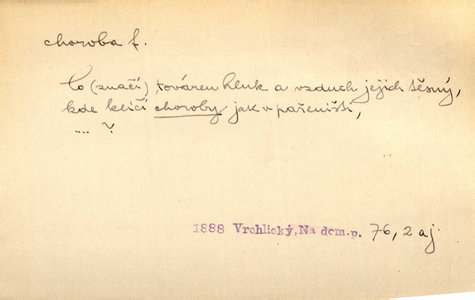 choroba f.
Co (značí) továren hluk a vzduch jejich těsný,
kde klíčí choroby jak v pařeništi,
.... ?
1888 Vrchlický, Na dom.p. 76, 2 aj